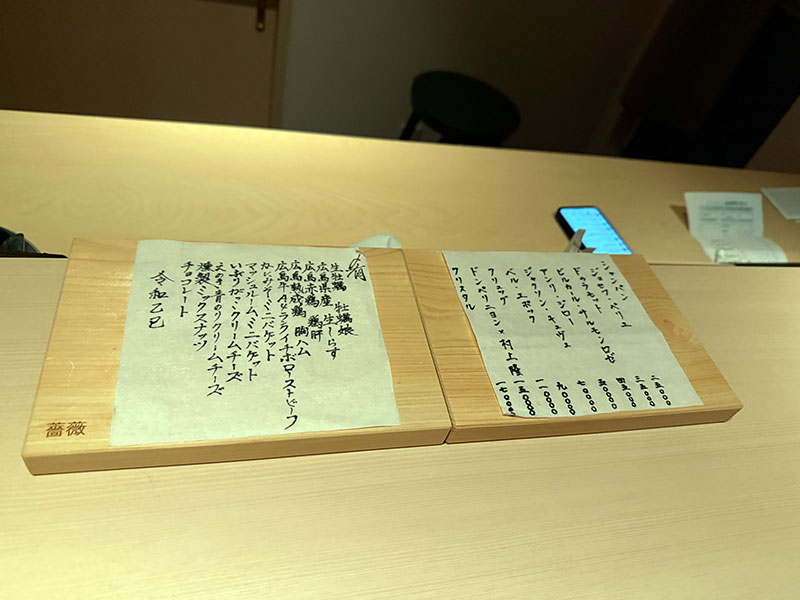 生牡蠣 牡蠣娘
広島県産 生しらす
広島赤鶏 鶏肝
広島熟成鶏 胸ハム
広島牛A4ランクイチボローストビーフ
かにみそミニバケット
マッシュルームミニバケット
いぶりがっこクリームチーズ
天の青のりクリームチーズ
燻製ミックスナッツ
チョコレート
令和乙巳
薔薇
シャンパン
ジョセフ・ペリエ 二五〇〇〇
ジャカート・モザイク
ドゥラモット
ビルカール・サルモンロゼ
アンリ・ジロー
ジャクソン・キュヴェ
ベル エポック
クリュッグ
ドンペリニヨン×村上隆
クリスタル
二五〇〇〇
三五〇〇〇
四五〇〇〇
五〇〇〇〇
七〇〇〇〇
九〇〇〇〇
一一〇〇〇〇
一五〇〇〇〇
一七〇〇〇〇